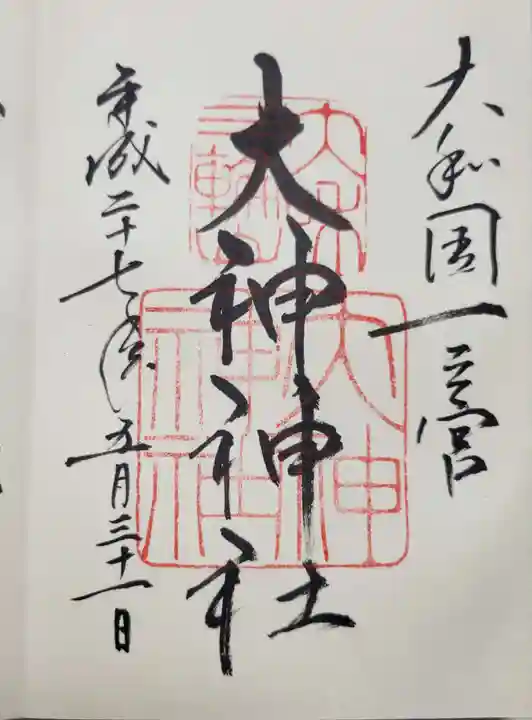 大和国一之宮
大神神社
平成二十七年五月三十一日
三輪
大神
神社